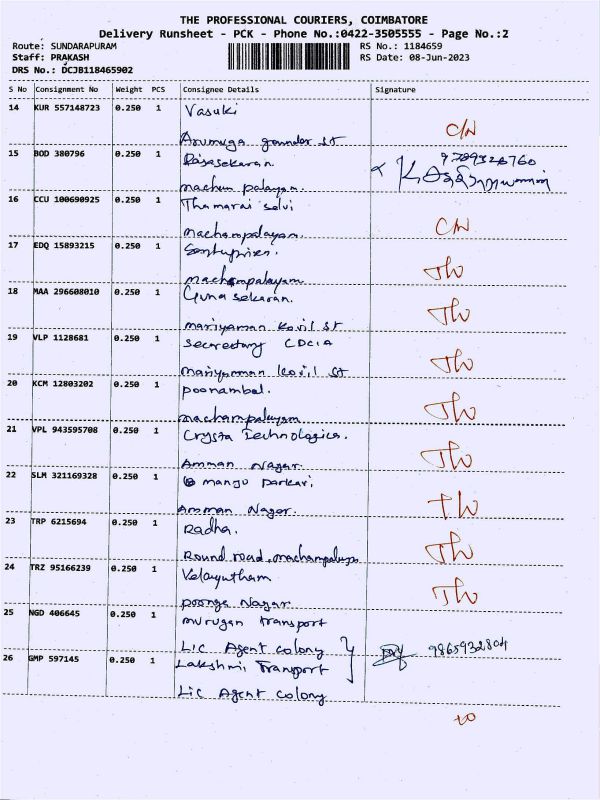 THE PROFESSIONAL COURIERS, COIMBATORE
Delivery Runsheet - PCK - Phone No.:0422-3505555 - Page No.:2
Route: SUNDARAPURAM RS No.: 1184659
Staff: PRAKASH RS Date: 08-Jun-2023
DRS No.: DCJB118465902
S No Consignment No Weight PCS Consignee Details Signature
14 KUR 557148723 0.250 1 Vasuki
Arumuga gounder st C/N
15 BOD 380796 0.250 1 Rajasekaran 9789326760
machum palayam.
16 CCU 100690925 0.250 1 Thamarai selvi
machampalayam C/N
17 EDQ 15893215 0.250 1
machampalayam Th
18 MAA 296608010 0.250 1 Guna sekaran.
mariyaman kovil st Th
19 VLP 1128681 0.250 1 Secreotary CDCIA
mariyamman kovil st Th
20 KCM 12803202 0.250 1 poonambal.
machampalayam Th
21 VPL 943595708 0.250 1 Crysta Technologies.
Amman Nagar. Th
22 SLM 321169328 0.250 1 mango parkavi
Amman Nagar. Th
23 TRP 6215694 0.250 1 Radha.
Round road, machampalaya Th
24 TRZ 95166239 0.250 1 Velayutham
poonga Nagar. Th
25 NGD 406645 0.250 1 murugan transport
Lic Agent colony 9865932804
26 GMP 597145 0.250 1 Lakshmi Transport
Lic Agent colony